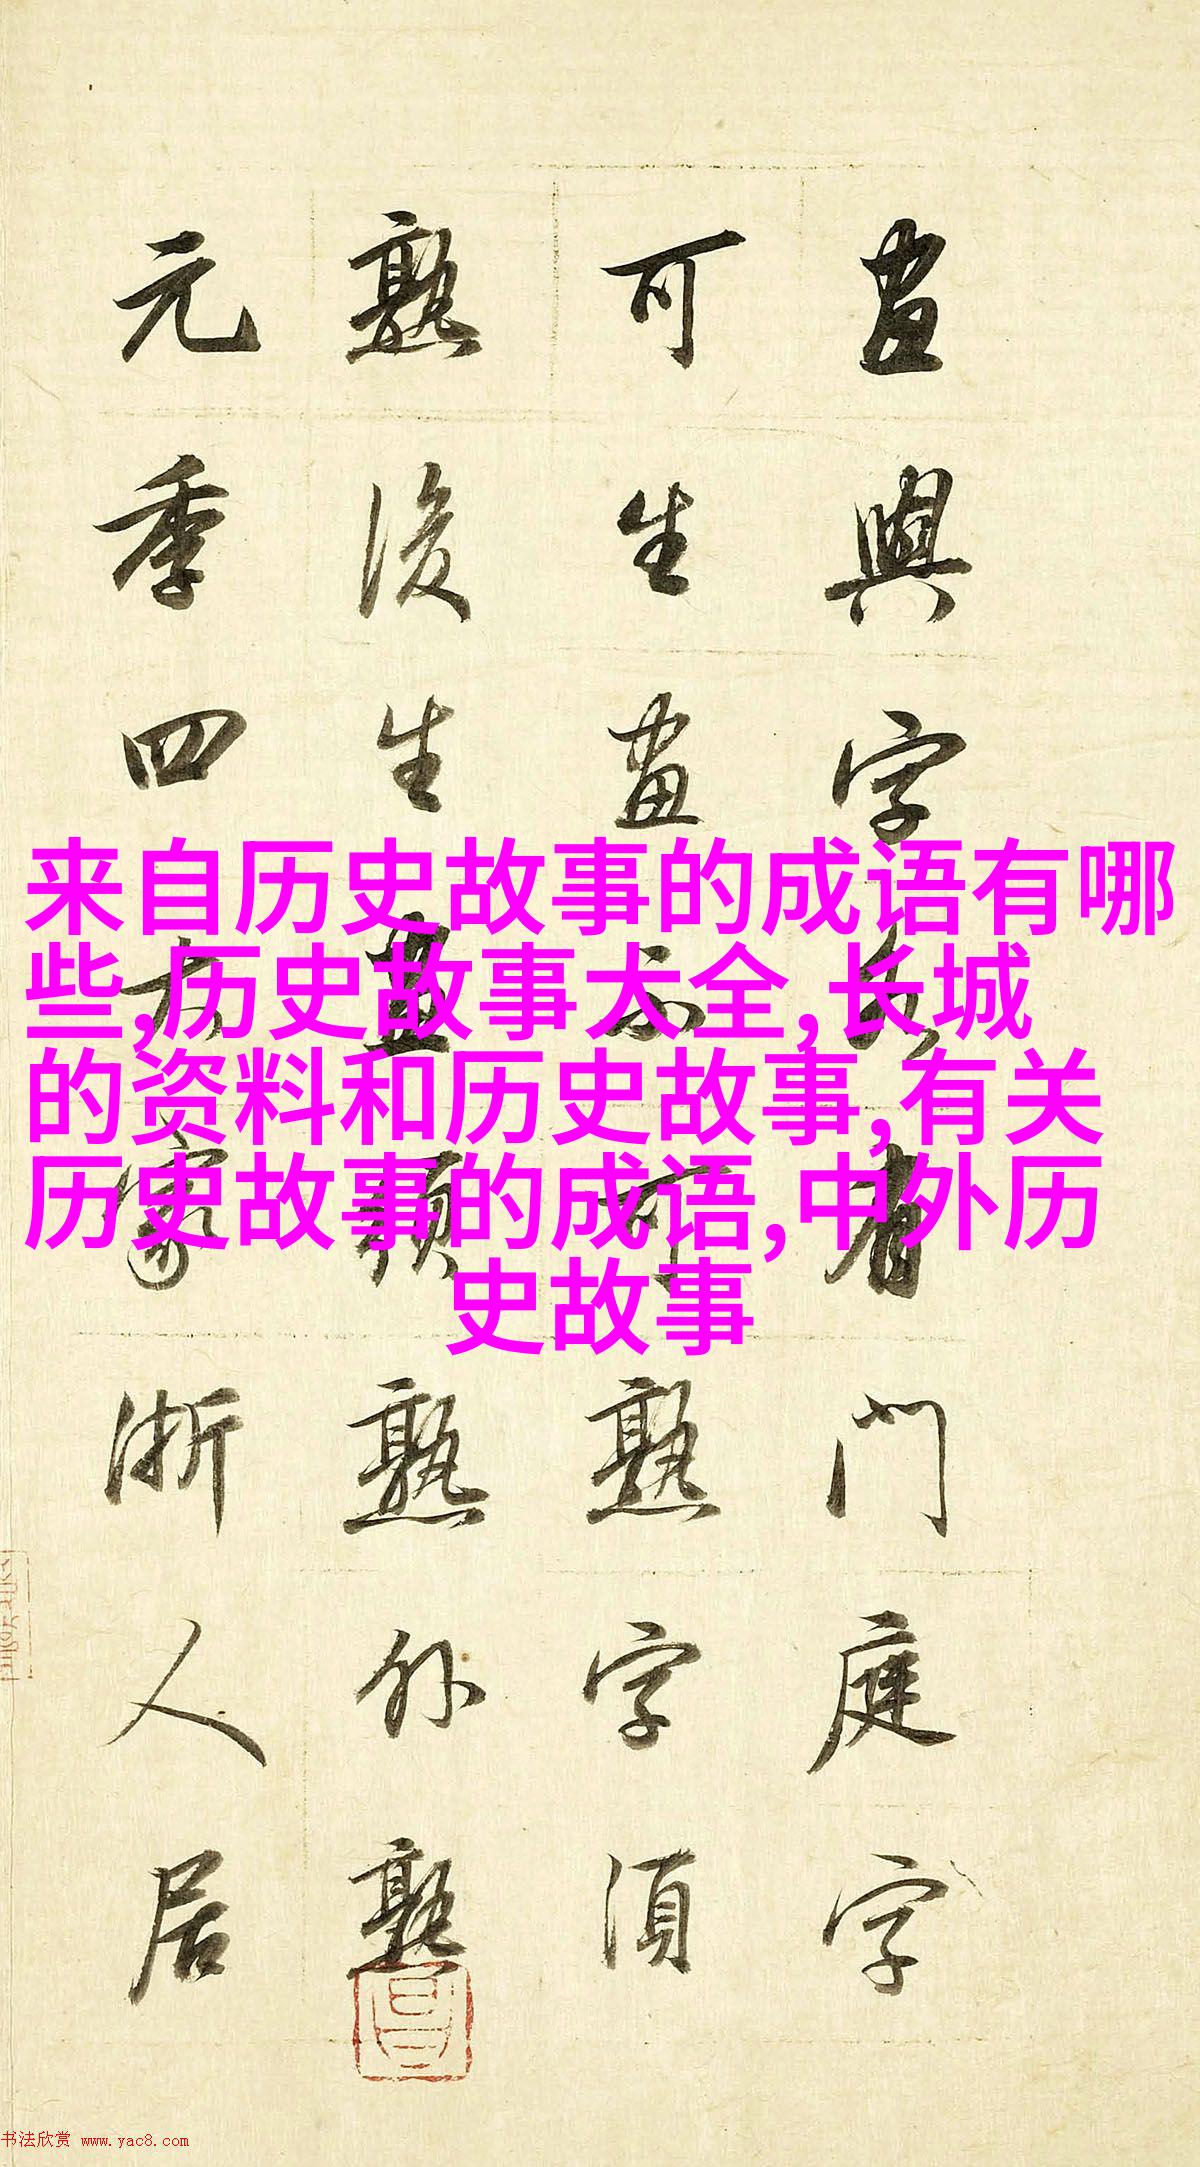 畫與字各有門庭字
可生畫不可熟字須
熟後生畫須熟外熟
元季四大家浙人居
来自历史故事的成语有哪
些,历史故事大全,长城
的资料和历史故事,有关
历史故事的成语,中外历
史故事
书法欣赏 www.yac8.com